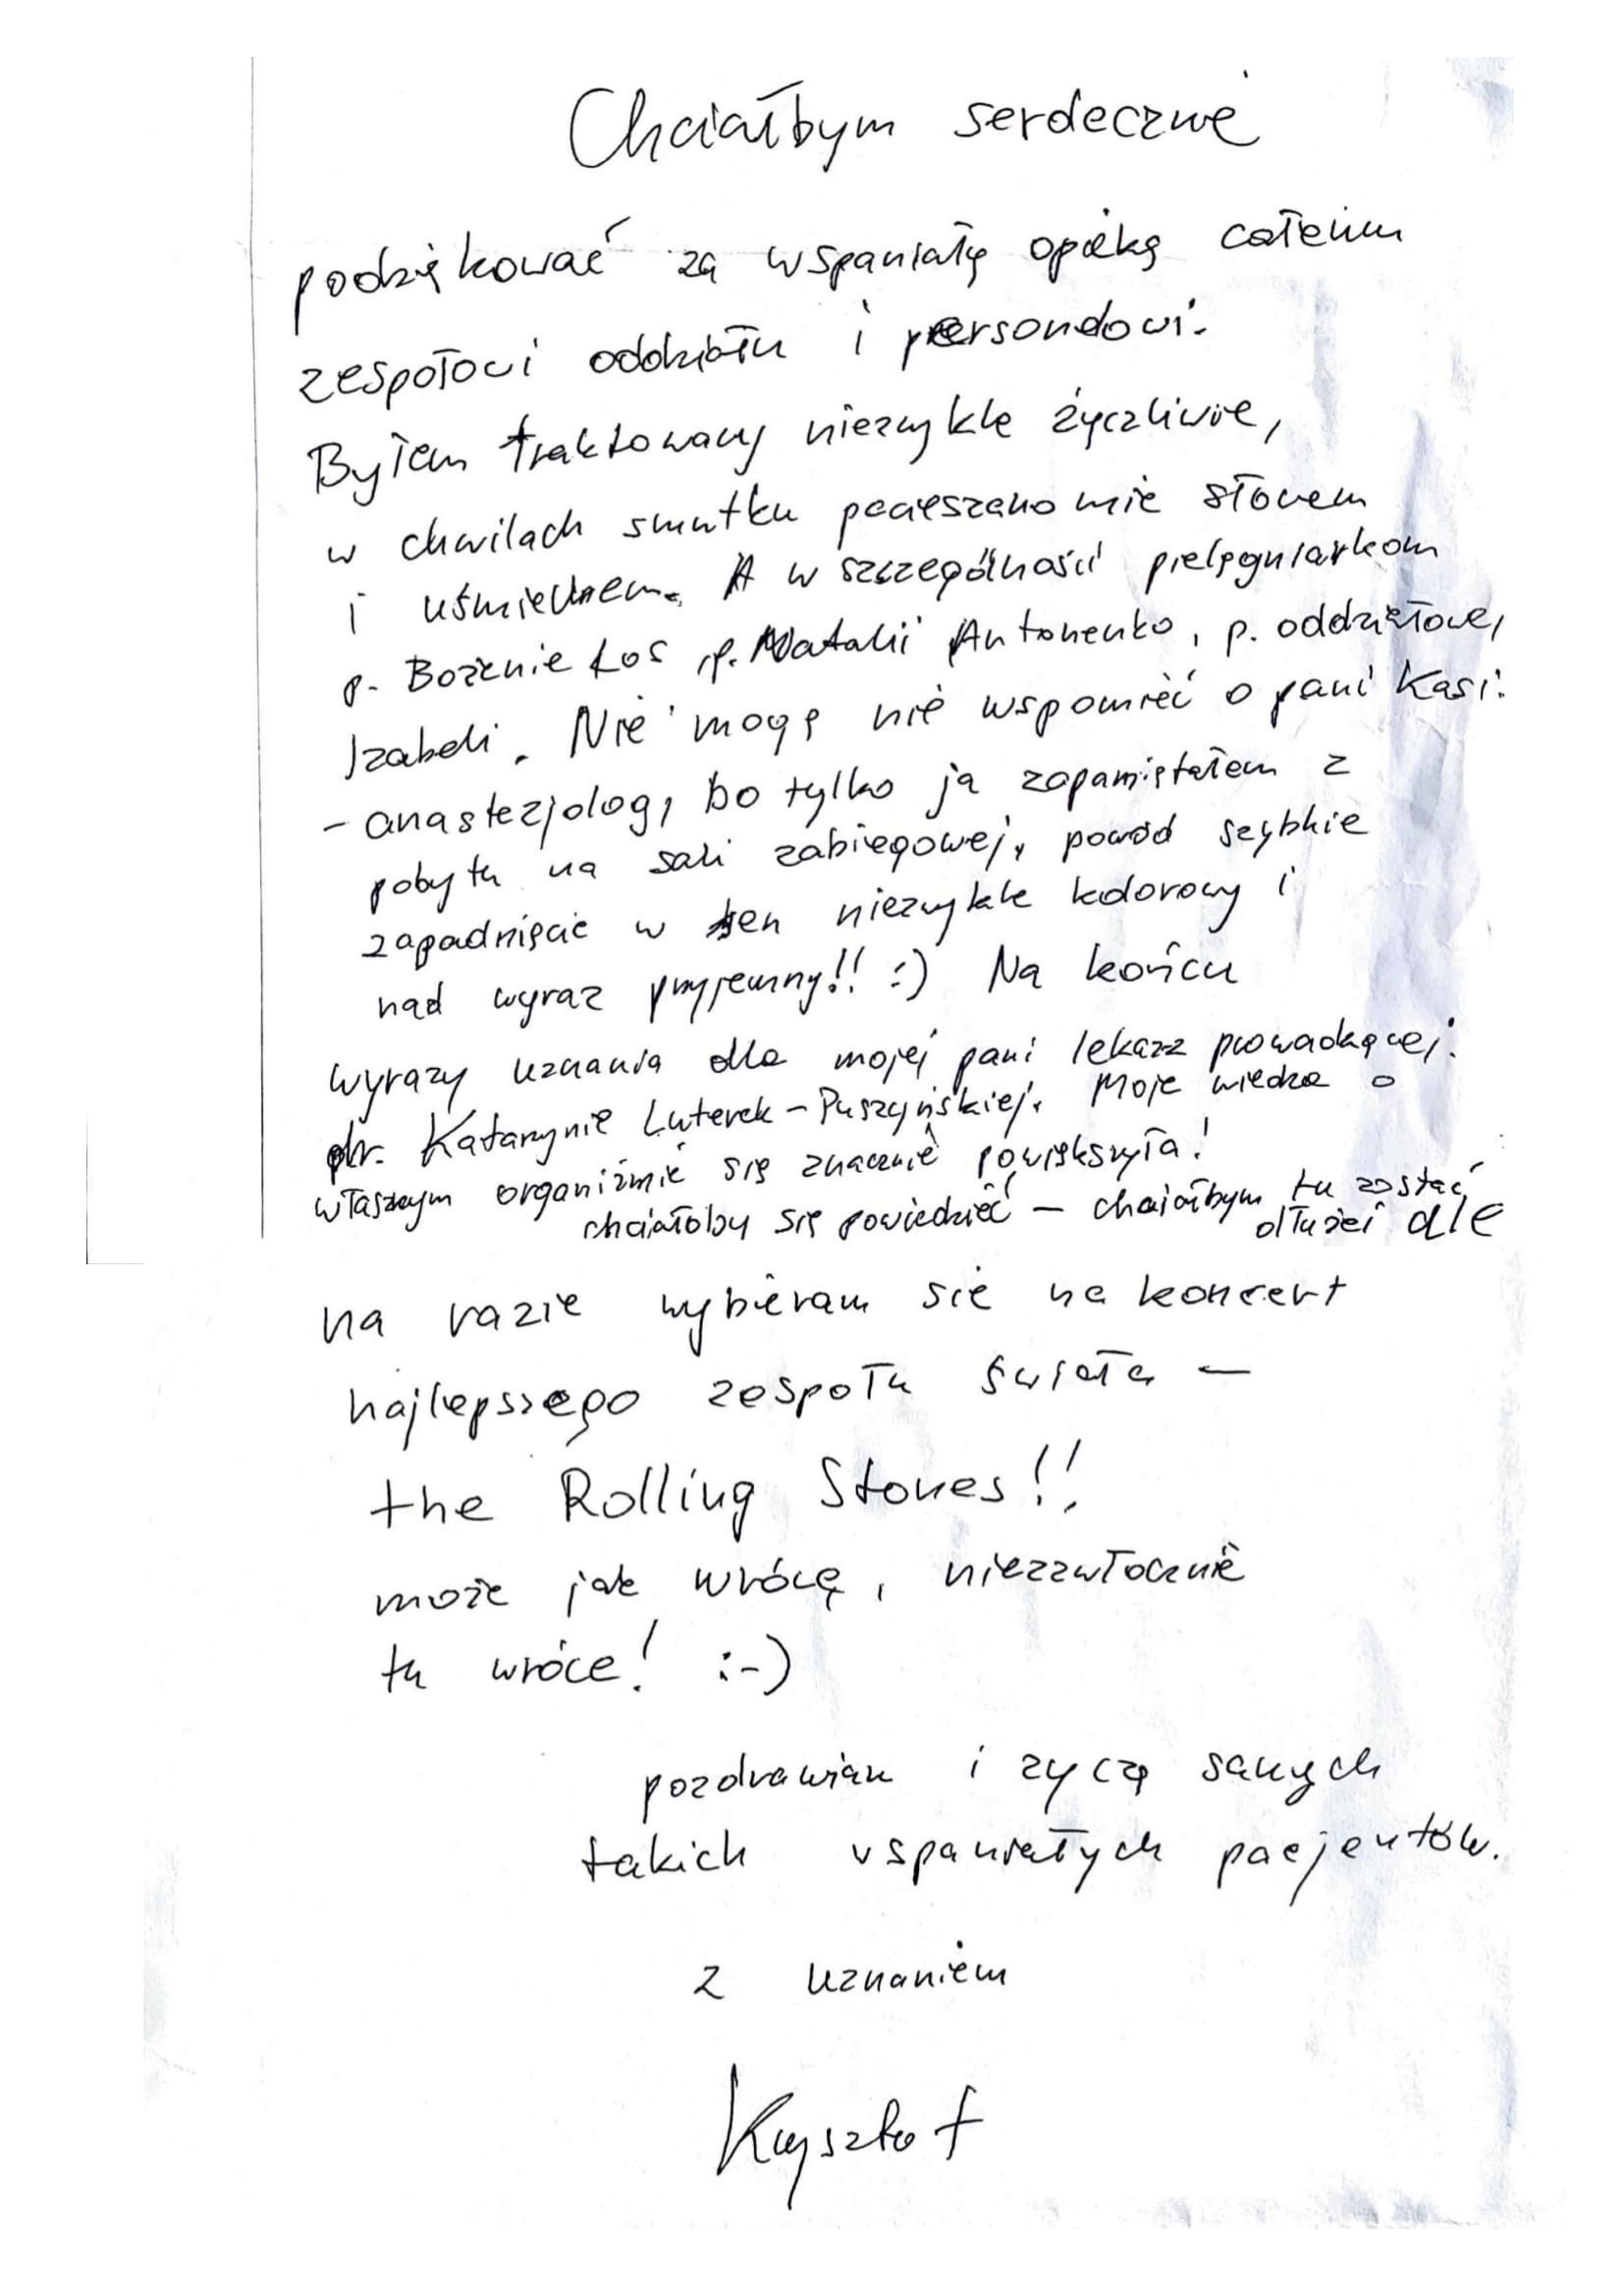 Chciałbym serdecznie
podziękować za wspaniałą opiekę całemu
zespołowi oddziału i personelowi.
Byłem traktowany niezwykle życzliwie,
w chwilach smutku pocieszano mnie słowem
i uśmiechem. A w szczególności pielęgniarkom
p. Bożenie Łoś, p. Natalii Antonenko, p. oddziałowej
Izabeli. Nie mogę nie wspomnieć o pani Kasi:
- anastezjolog, bo tylko ją zapamiętałem z
pobytu na sali zabiegowej, powód szybkie
zapadnięcie w sen niezwykle kolorowy i
nad wyraz przyjemny!! :) Na końcu
wyrazy uznania dla mojej pani lekarz prowadzącej:
dr. Katarzynie Luterek-Puszyńskiej. Moje wiedza o
własnym organiźmie się znacznie powiększyła!
chciałoby się powiedzieć - chciałbym tu zostać
dłużej ale
na razie wybieram sie na koncert
najlepszego zespołu świata -
the Rolling Stones!!
może jak wrócę, niezzwłocznie
tu wróce! :-)
pozdrawiam i zyczę samych
takich wspaniałych pacjentów.
z uznaniem
Krzysztof